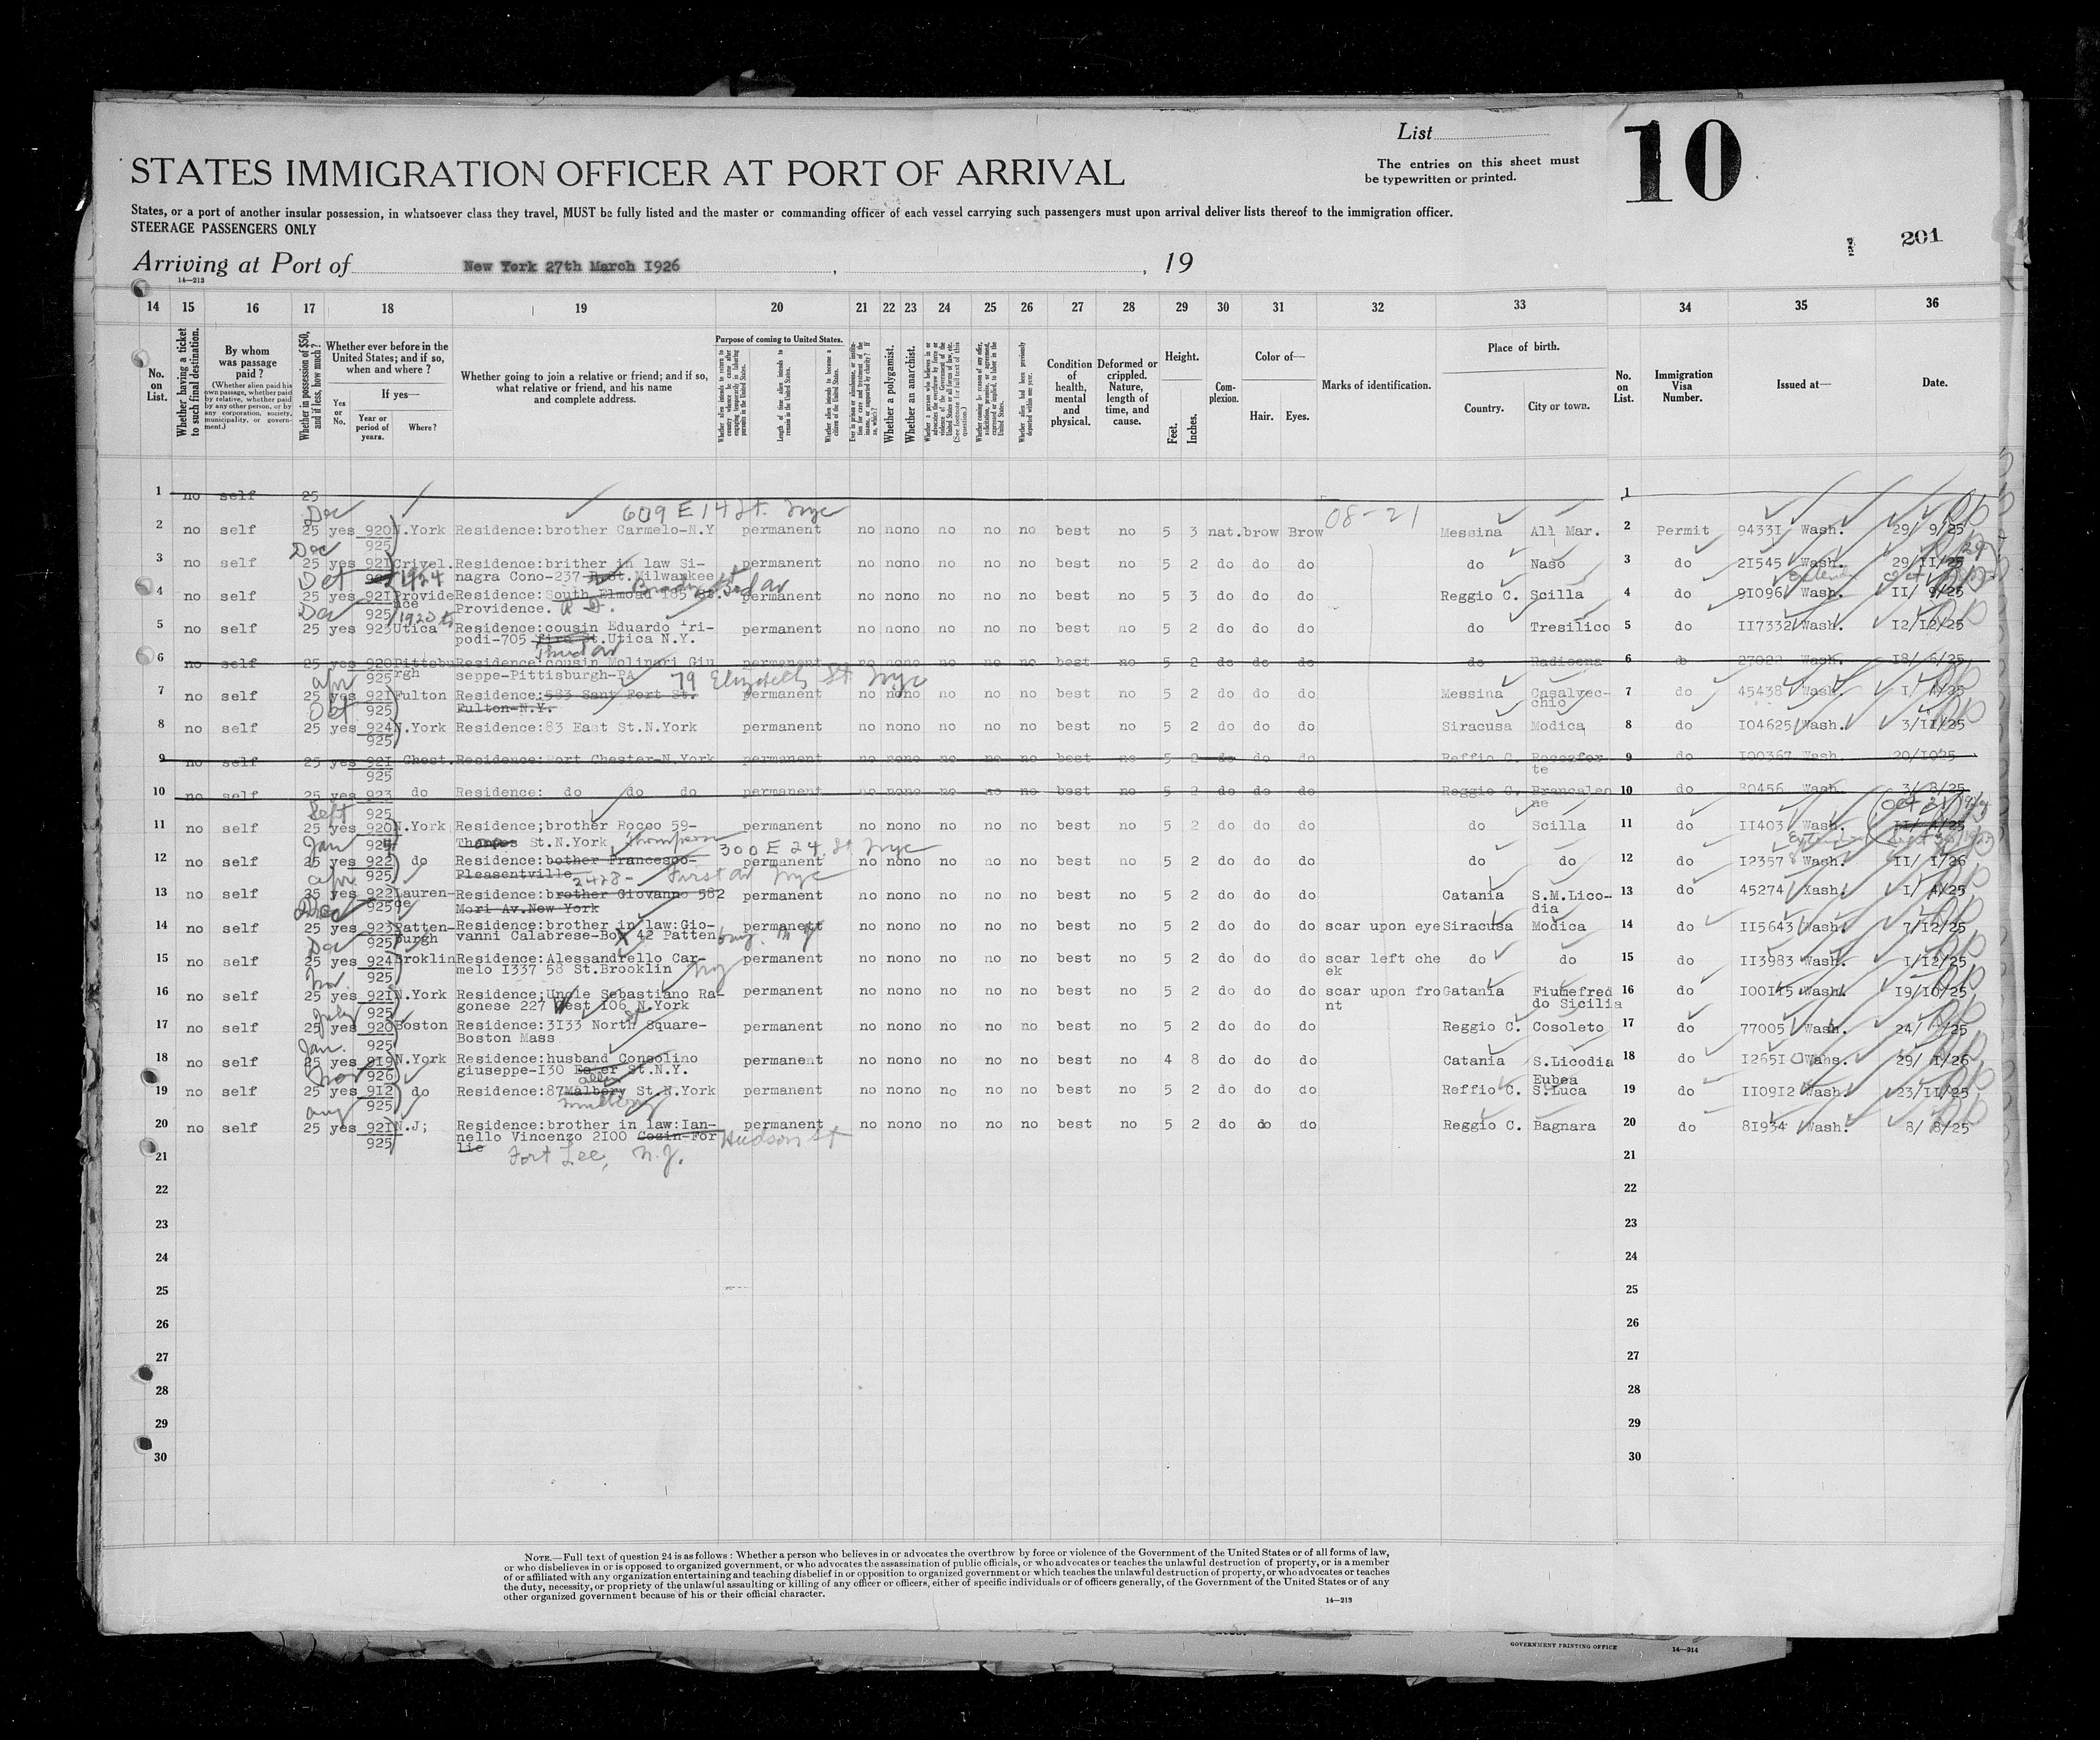 List
10
The entries on this sheet must
be typewritten or printed.
STATES IMMIGRATION OFFICER AT PORT OF ARRIVAL
States, or a port of another insular possession, in whatsoever class they travel, MUST be fully listed and the master or commanding officer of each vessel carrying such passengers must upon arrival deliver lists thereof to the immigration officer.
STEERAGE PASSENGERS ONLY
201
Arriving at Port of New York 27th March 1926 , , 19
14—213
14 15 16 17 18 19 20 21 22 23 24 25 26 27 28 29 30 31 32 33 34 35 36
No. on List.
Whether having a ticket to such final destination.
By whom was passage paid?
(Whether alien paid his own passage, whether paid by relative, whether paid by any other person, or by any corporation, society, municipality, or government.)
Whether in possession of $50, and if less, how much?
Whether ever before in the United States; and if so, when and where?
If yes—
Yes or No.
Year or period of years.
Where?
Whether going to join a relative or friend; and if so, what relative or friend, and his name and complete address.
Purpose of coming to United States.
Length of time alien intends to remain in the United States.
Whether alien intends to become a citizen of the United States.
Whether a polygamist.
Whether an anarchist.
Condition of health, mental and physical.
Deformed or crippled. Nature, length of time, and cause.
Height.
Feet.
Inches.
Complexion.
Color of—
Hair.
Eyes.
Marks of identification.
Place of birth.
Country.
City or town.
No. on List.
Immigration Visa Number.
Issued at—
Date.
1 no self 25 1
Dec 609 E 14 St. nyc 08-21
2 no self 25 yes 920 N.York Residence:brother Carmelo-N.Y permanent no nono no no no best no 5 3 nat. brow Brow Messina All Mar. 2 Permit 9433I Wash. 29/ 9/25
925
Dec
3 no self 25 yes 92I Crivel. Residence:brither in law Si- permanent no nono no no no best no 5 2 do do do do Naso 3 do 2I545 Wash. 29/II/25
1924 nagra Cono-237 Milwaukee
Oct
4 no self 25 yes 92I Provide Residence: South Elmoad I85 St. permanent no nono no no no best no 5 3 do do do Reggio C. Scilla 4 do 9I096 Wash. II/ 9/25
925 nce Providence. R I.
Dec 1920 to
5 no self 25 yes 923 Utica Residence:cousin Eduardo Tri- permanent no nono no no no best no 5 2 do do do do Tresilico 5 do II7332 Wash. I2/I2/25
podi-705 St.Utica N.Y.
Third av
6 no self 25 yes 920 Pittsbu Residence:cousin Molinari Giu permanent no nono no no no best no 5 2 do do do do Radicena 6 do Wash. I8/ 6/25
925 rgh seppe-Pittisburgh-PA
Apr 79 Elizabeth St nyc
7 no self 25 yes 92I Fulton Residence:583 Sany Fort St. permanent no nono no no no best no 5 2 do do do Messina Casalvec- 7 do 45438 Wash. I/ 4/25
925 Fulton-N.Y. chio
Oct
8 no self 25 yes 924 N.York Residence:83 East St.N.York permanent no nono no no no best no 5 2 do do do Siracusa Modica 8 do I04625 Wash. 3/II/25
925
9 no self 25 yes 92I Chest. Residence:Port Chester-N.York permanent no nono no no no best no 5 2 do do do Reffio C. Roccafor- 9 do I00367 Wash 20/I025
925 te
10 no self 25 yes 923 do Residence: do do do permanent no nono no no no best no 5 2 do do do Reggio C. Brancaleo 10 do 80456 Wash. 3/ 8/25
925 ne
Sept Oct
11 no self 25 yes 920 N.York Residence;brother Rocco 59- permanent no nono no no no best no 5 2 do do do do Scilla 11 do II403 Wash.
Thompos St.N.York Thompson
Jan 300 E 24 St nyc
12 no self 25 yes 922 do Residence:bother Francesco- permanent no nono no no no best no 5 2 do do do do do 12 do I2357 Wash. II/ I/26
925 Pleasentville 2428- First av nyc
Apr
13 no self 35 yes 922 Lauren- Residence:brother Giovanno 582 permanent no nono no no no best no 5 2 do do do Catania S.M.Lico- 13 do 45274 Xash. I/ 4/25
925 ce Mori Av.New York dia
Dec
14 no self 25 yes 923 Patten- Residence:brother in law:Gio- permanent no nono no no no best no 5 2 do do do scar upon eye Siracusa Modica 14 do II5643 Wash. 7/I2/25
925 burgh vanni Calabrese-Box 42 Patten burg. N J
Dec
15 no self 25 yes 924 Broklin Residence:Alessandrello Car- permanent no nono no no no best no 5 2 do do do scar left che do do 15 do II3983 Wash. I/I2/25
925 melo I337 58 St.Brooklin NY ek
Nov.
16 no self 25 yes 92I N.York Residence;Uncle Sebastiano Ra- permanent no nono no no no best no 5 2 do do do scar upon fro Catania Fiumefred 16 do I00II5 Wash. I9/I0/25
925 gonese 227 West I06 N.York nt do Sicilia
July
17 no self 25 yes 920 Boston Residence:3I33 North Square- permanent no nono no no no best no 5 2 do do do Reggio C. Cosoleto 17 do 77005 Wash. 24/ /25
925 Boston Mass
Jan.
18 no self 25 yes 9I9 N.York Residence:husband Consolino permanent no nono no no no best no 4 8 do do do Catania S.Licodia 18 do I265I0 Wahs. 29/ I/26
926 giuseppe-I30 St.N.Y. Eubea
Nov
19 no self 25 yes 9I2 do Residence:87 Malbery St.N.York permanent no nono no no no best no 5 2 do do do Reffio C. S.Luca 19 do II09I2 Wash. 23/II/25
925 mulberry
Aug
20 no self 25 yes 92I N.J; Residence:brother in law:Ian- permanent no nono no no no best no 5 2 do do do Reggio C. Bagnara 20 do 8I934 Wash. 8/ 8/25
925 nello Vincenzo 2I00 Cozin-For Hudson St
lie Fort Lee, N.J.
21 21
22 22
23 23
24 24
25 25
26 26
27 27
28 28
29 29
30 30
NOTE.—Full text of question 24 is as follows: Whether a person who believes in or advocates the overthrow by force or violence of the Government of the United States or of all forms of law,
or who disbelieves in or is opposed to organized government, or who advocates the assassination of public officials, or who advocates or teaches the unlawful destruction of property, or is a member
of or affiliated with any organization entertaining and teaching disbelief in or opposition to organized government or which teaches the unlawful destruction of property, or who advocates or teaches
the duty, necessity, or propriety of the unlawful assaulting or killing of any officer or officers, either of specific individuals or of officers generally, of the Government of the United States or of any
other organized government because of his or their official character.
14—213
GOVERNMENT PRINTING OFFICE 14—214